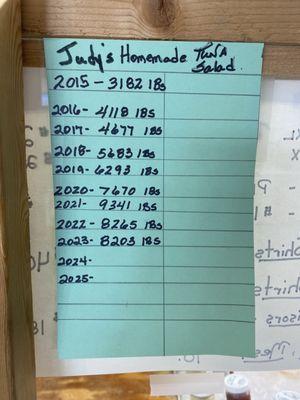 Judy's Homemade Tuna Salad.
2015 - 3182 lbs
2016 - 4118 lbs
2017 - 4677 lbs
2018 - 5683 lbs
2019 - 6293 lbs
2020 - 7670 lbs
2021 - 9341 lbs
2022 - 8265 lbs
2023 - 8203 lbs
2024 -
2025 -